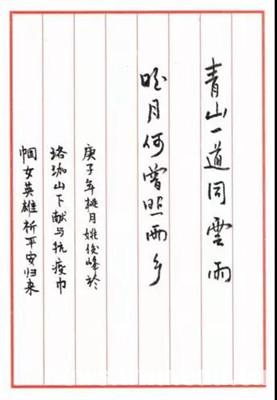 青山一道同雲雨
明月何嘗照兩乡
庚子年桃月姚俊峰於
珞珈山下献与抗疫巾
帼女英雄祈平安归来